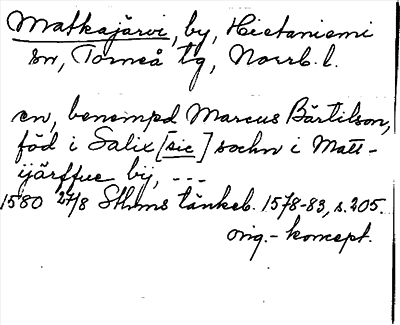 Matkajärvi, by, Hietaniemi
sn, Torneå tg, Norrb. l.
en, benempd Marcus Bärtilson,
föd i Salix [sic] sochn i Matt-
ijärffue bij, ---
1580 27/8 Sthms tänkeb. 1578-83, s. 205.
orig.-koncept.